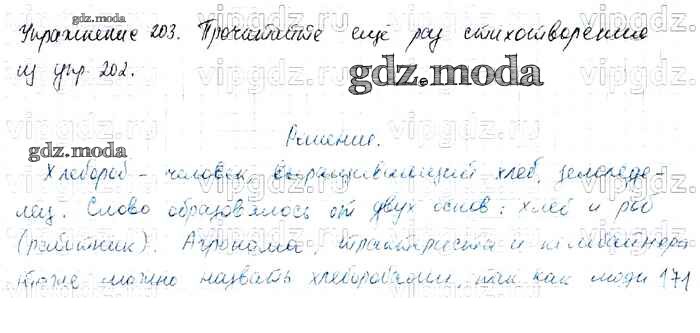 gdz.moda
Упражнение 203. Прочитайте ещё раз стихотворение
из упр 202.
gdz.moda
Решение.
gdz.moda
Хлебороб – человек, выращивающий хлеб, земледе-
лец. Слово образовалось от двух основ: хлеб и роб
(работник). Агронома, тракториста и комбайнера
тоже можно назвать хлеборобами, так как люди 171